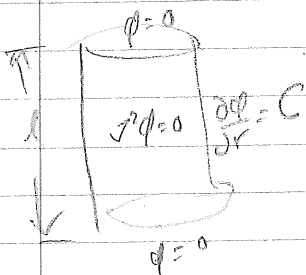 φ = 0
l
∇²φ = 0
∂φ/∂r = C
φ = 0